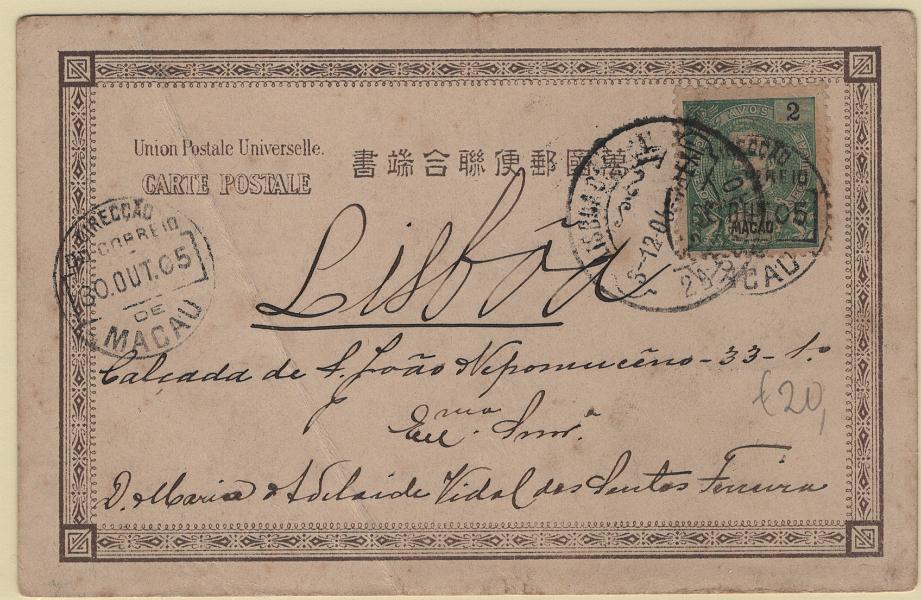 Union Postale Universelle.
CARTE POSTALE
書端合聯便郵國萬
2
MACAU
DIRECÇÃO
CORREIO
OUT.05
MACAU
DIRECÇÃO
CORREIO
30.OUT.05
DE
MACAU
Lisbôa
Calçada de S. João Nepomuceno-33-1.º
Exma. Snrª.
D. Maria Adelaide Vidal dos Santos Ferreira
£20,